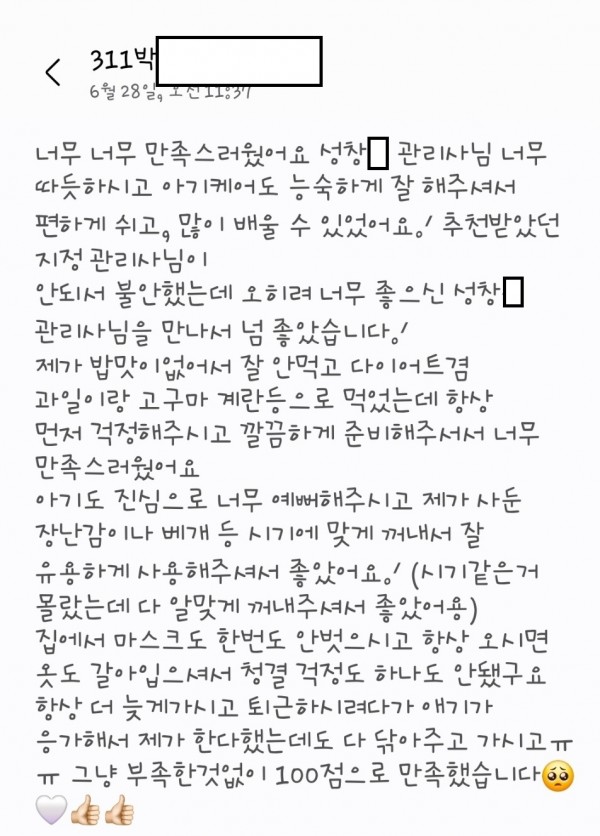 311박
6월 28일, 오전 11:37
너무 너무 만족스러웠어요 성창 관리사님 너무
따듯하시고 아기케어도 능숙하게 잘 해주셔서
편하게 쉬고, 많이 배울 수 있었어요! 추천받았던
지정 관리사님이
안되서 불안했는데 오히려 너무 좋으신 성창
관리사님을 만나서 넘 좋았습니다!
제가 밥맛이없어서 잘 안먹고 다이어트겸
과일이랑 고구마 계란등으로 먹었는데 항상
먼저 걱정해주시고 깔끔하게 준비해주서서 너무
만족스러웠어요
아기도 진심으로 너무 예뻐해주시고 제가 사둔
장난감이나 베개 등 시기에 맞게 꺼내서 잘
유용하게 사용해주셔서 좋았어요! (시기같은거
몰랐는데 다 알맞게 꺼내주셔서 좋았어용)
집에서 마스크도 한번도 안벗으시고 항상 오시면
옷도 갈아입으셔서 청결 걱정도 하나도 안됐구요
항상 더 늦게가시고 퇴근하시려다가 얘기가
응가해서 제가 한다했는데도 다 닦아주고 가시고ㅠ
ㅠ 그냥 부족한것없이 100점으로 만족했습니다🥺
🤍👍🏻👍🏻